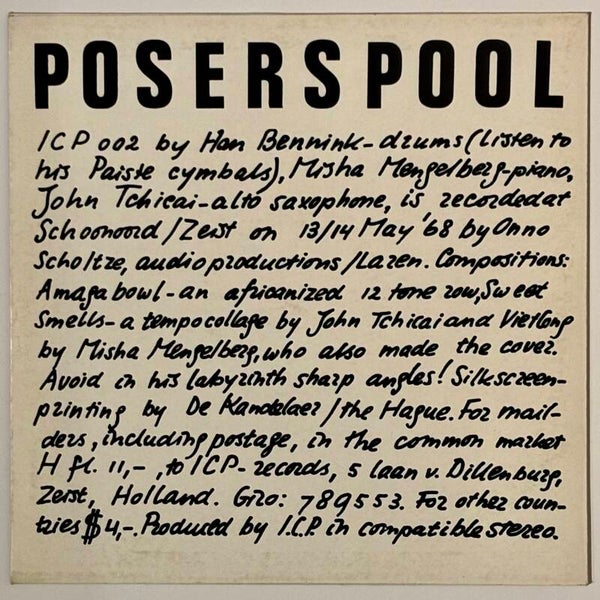 POSERSPOOL
ICP 002 by Han Bennink-drums (listen to
his Paiste cymbals), Misha Mengelberg-piano,
John Tchicai-alto saxophone, is recorded at
Schoonoord/Zeist on 13/14 May '68 by Onno
Scholtze, audioproductions/Laren. Compositions:
Amagabowl-an africanized 12 tone row, Sweet
Smells-a tempocollage by John Tchicai and Vietcong
by Misha Mengelberg, who also made the cover.
Avoid in his labyrinth sharp angles! Silkscreen-
printing by De Kandelaer/the Hague. For mail-
ders, including postage, in the common market
H fl. 11,-, to ICP-records, 5 laan v. Dillenburg,
Zeist, Holland. Giro: 789553. For other coun-
tries $4,-. Produced by I.C.P. in compatible stereo.